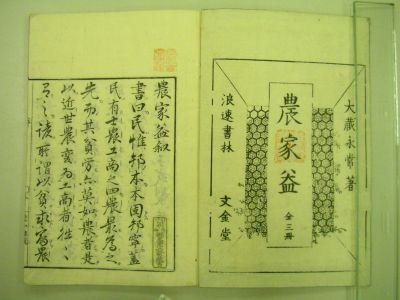 大蔵永常著
農家益
全三冊
浪速書林
文金堂
農家益叙
書曰民惟邦本本固邦寧蓋
民有士農工商之四農最為之
先而其貧労亦莫如農者是
以近世農棄為工商者往々
有之諺所謂以貧求富農